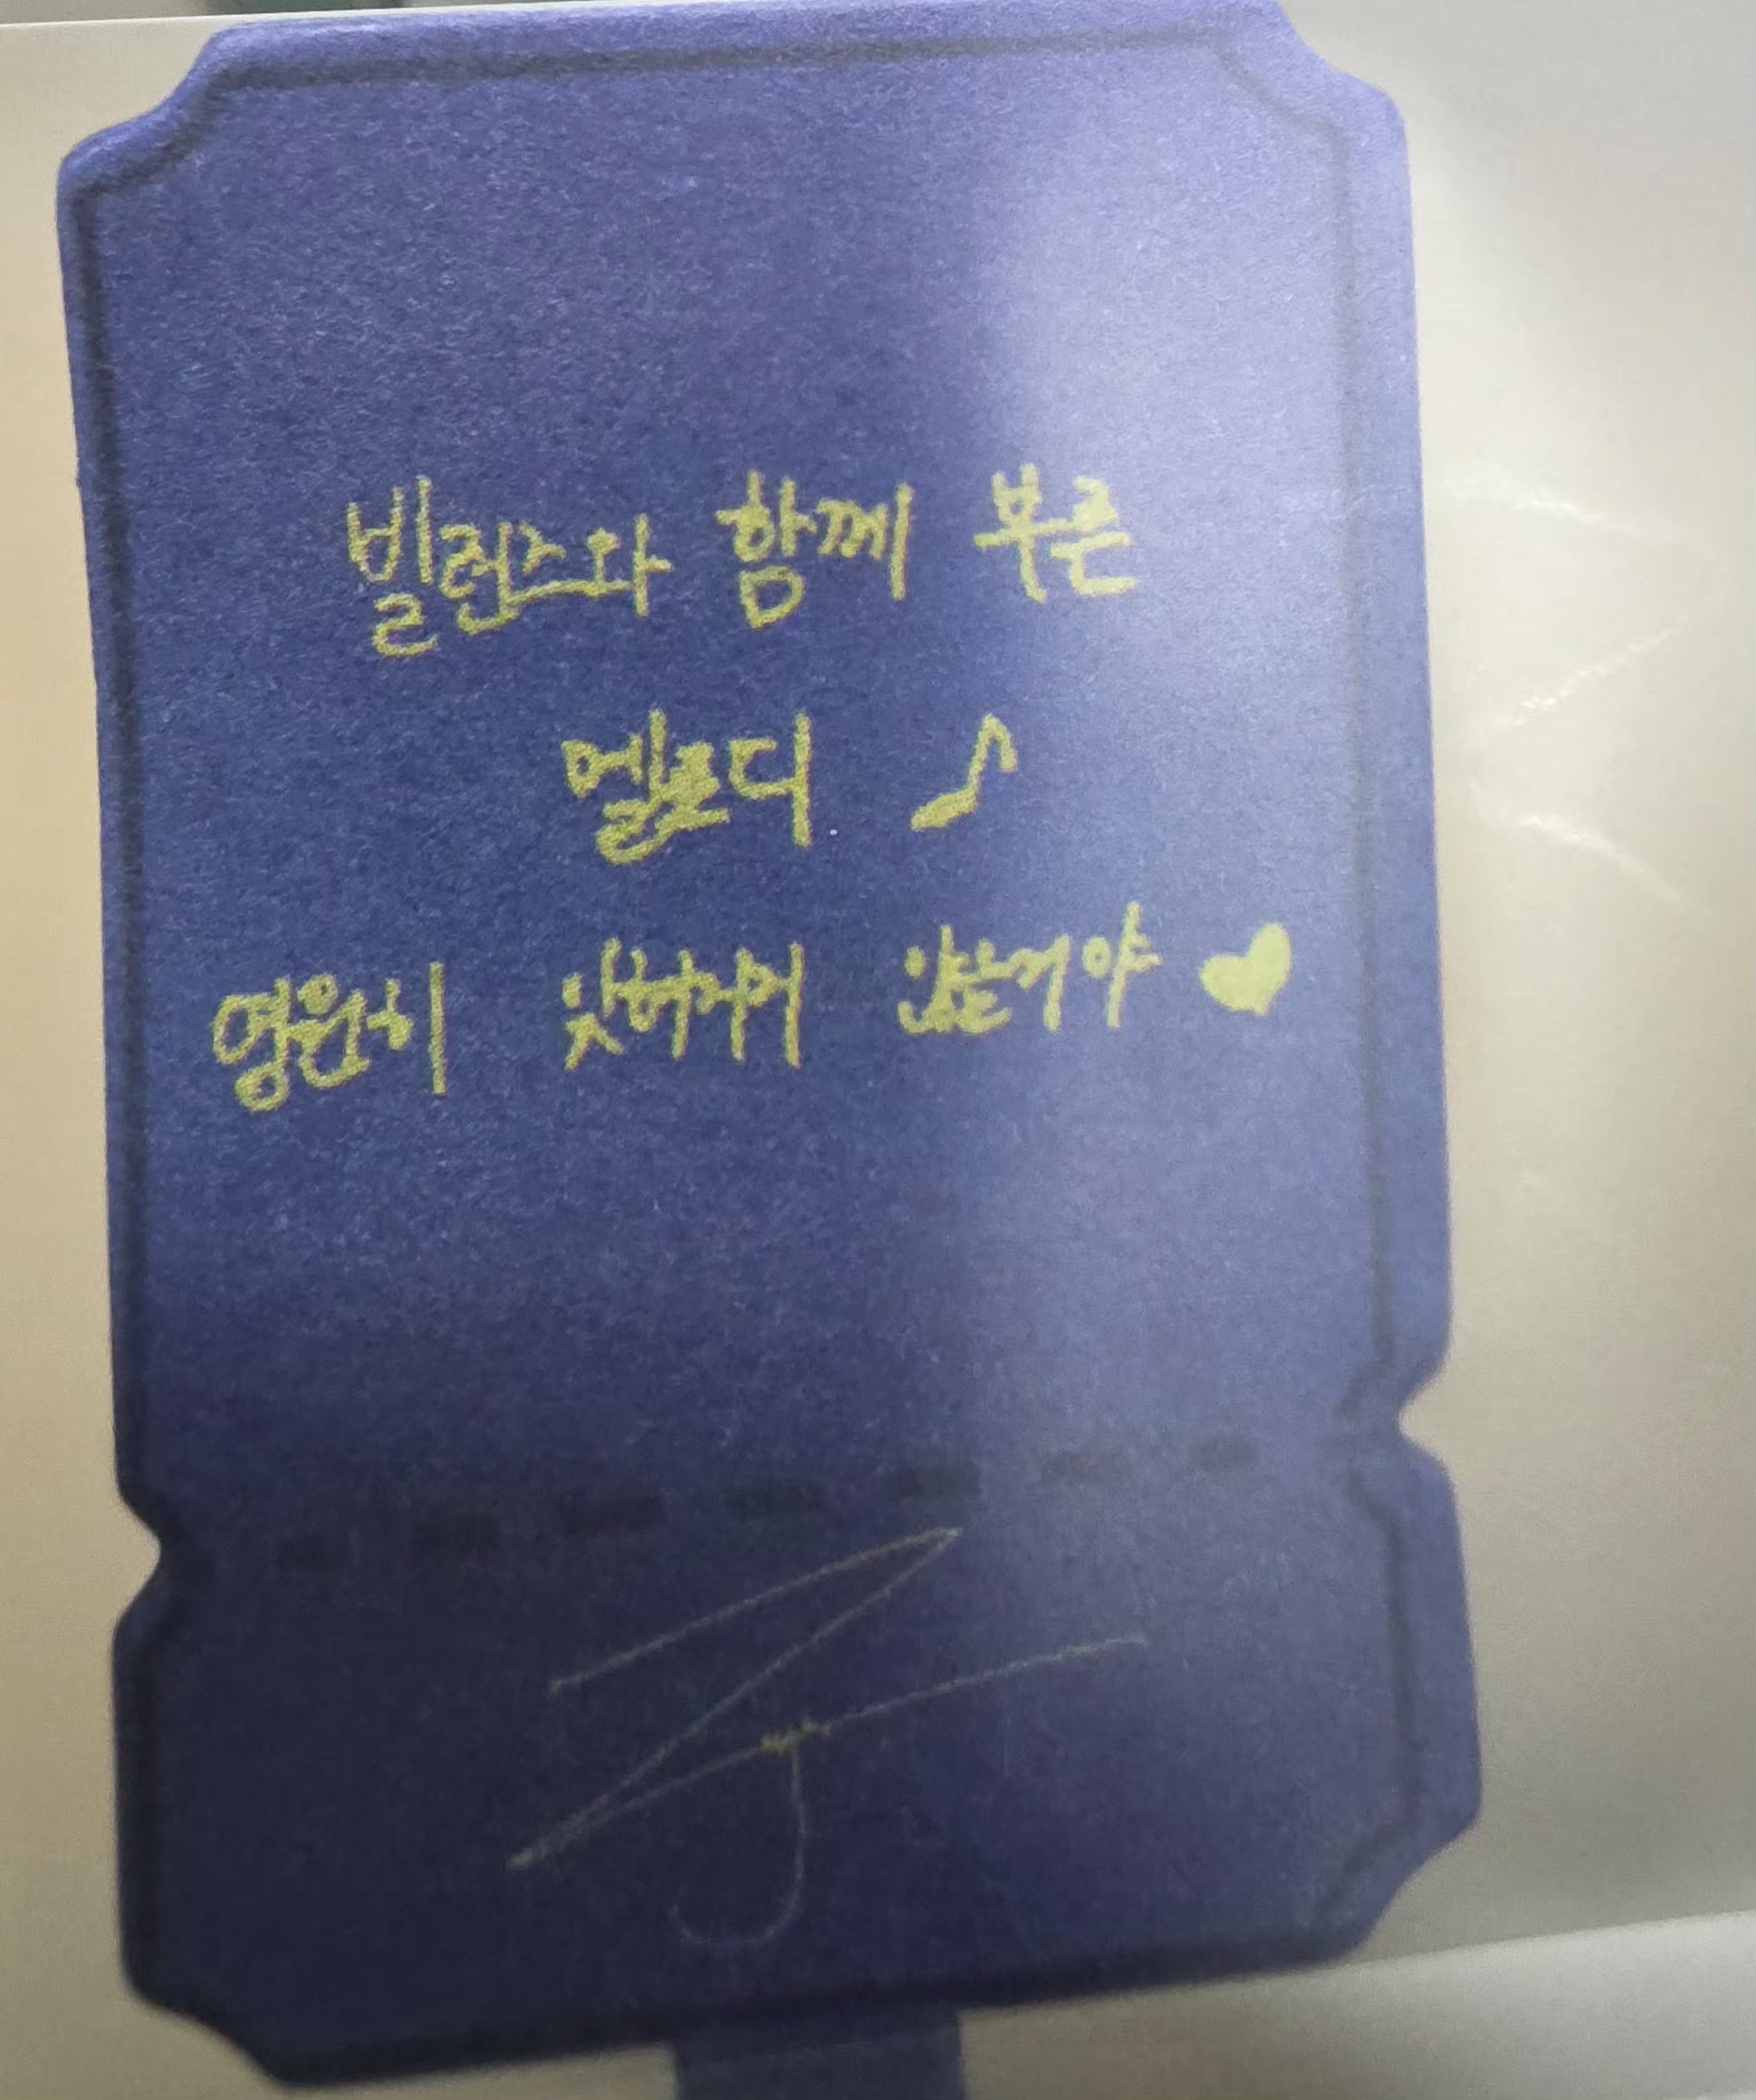 빌런즈와 함께 부른
멜로디 ♪
영원히 잊혀지지 않는거야 ♥